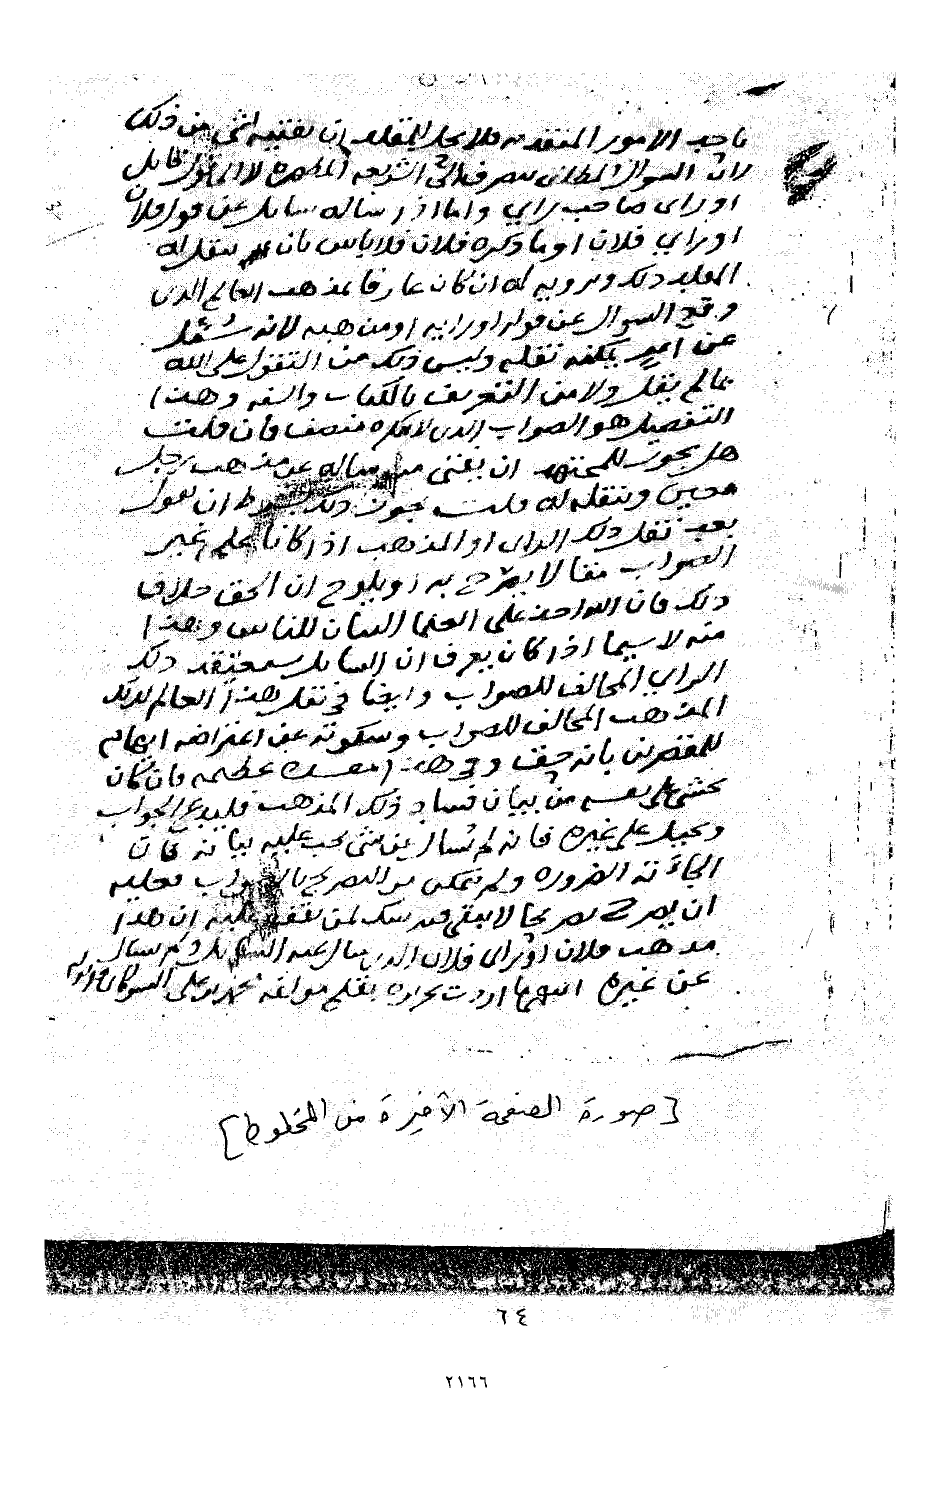 باحد الامور المتقدمه فلا يحل للمقلد ان يفتيه بشي من ذلك
لان السوال المطلق ينصرف الى الشريعه المطهره لا الى قول قايل
او راى صاحب راي واما اذا ساله سايل عن قول فلان
او راي فلان او ما ذكره فلان فلا باس بان ينقل له
المقلد ذلك ويرويه له ان كان عارفا بمذهب العالم الذى
وقع السوال عن قوله او رايه او مذهبه لانه سُئل
عن امرٍ يمكنه نقله وليس ذلك من التقول على الله
بما لم يقل ولا من التعريف بالكتاب والسنه وهذا
التفصيل هو الصواب الذى لا ينكره منصف فان قلت
هل يجوز للمجتهد ان يفتى من ساله عن مذهب رجل
معين وينقله له قلت يجوز ذلك بشرط ان يقول
بعد نقل ذلك الراى او المذهب اذا كانا على غير
الصواب مقالا يصرح به او يلوح ان الحق خلاف
ذلك فان الله اخذ على العلما البيان للناس وهذا
منه لا سيما اذا كان يعرف ان السايل سيعتقد ذلك
الراي المخالف للصواب وايضا في نقل هذا العالم لذلك
المذهب المخالف للصواب وسكوته عن اعتراضه ايهام
للمقصرين بانه حق وفي هذا مفسده عظيمه فان كان
يخشى على نفسه من بيان فساد ذلك المذهب فليدع الجواب
ويحيل على غيره فانه لم يُسال عن شى يجب عليه بيانه فان
الجأته الضروره ولم يتمكن من التصريح بالصواب فعليه
ان يصرح تصريحا لا يبقى فيه شك لمن يقف عليه ان هذا
مذهب فلان او راى فلان الذى سال عنه السايل ولم يسال
عن غيره انتهى ما اردت تحريره بقلم مولفه محمد بن على الشوكانى
[صورة الصفحة الأخيرة من المخطوط]
٦٤
٢١٦٦